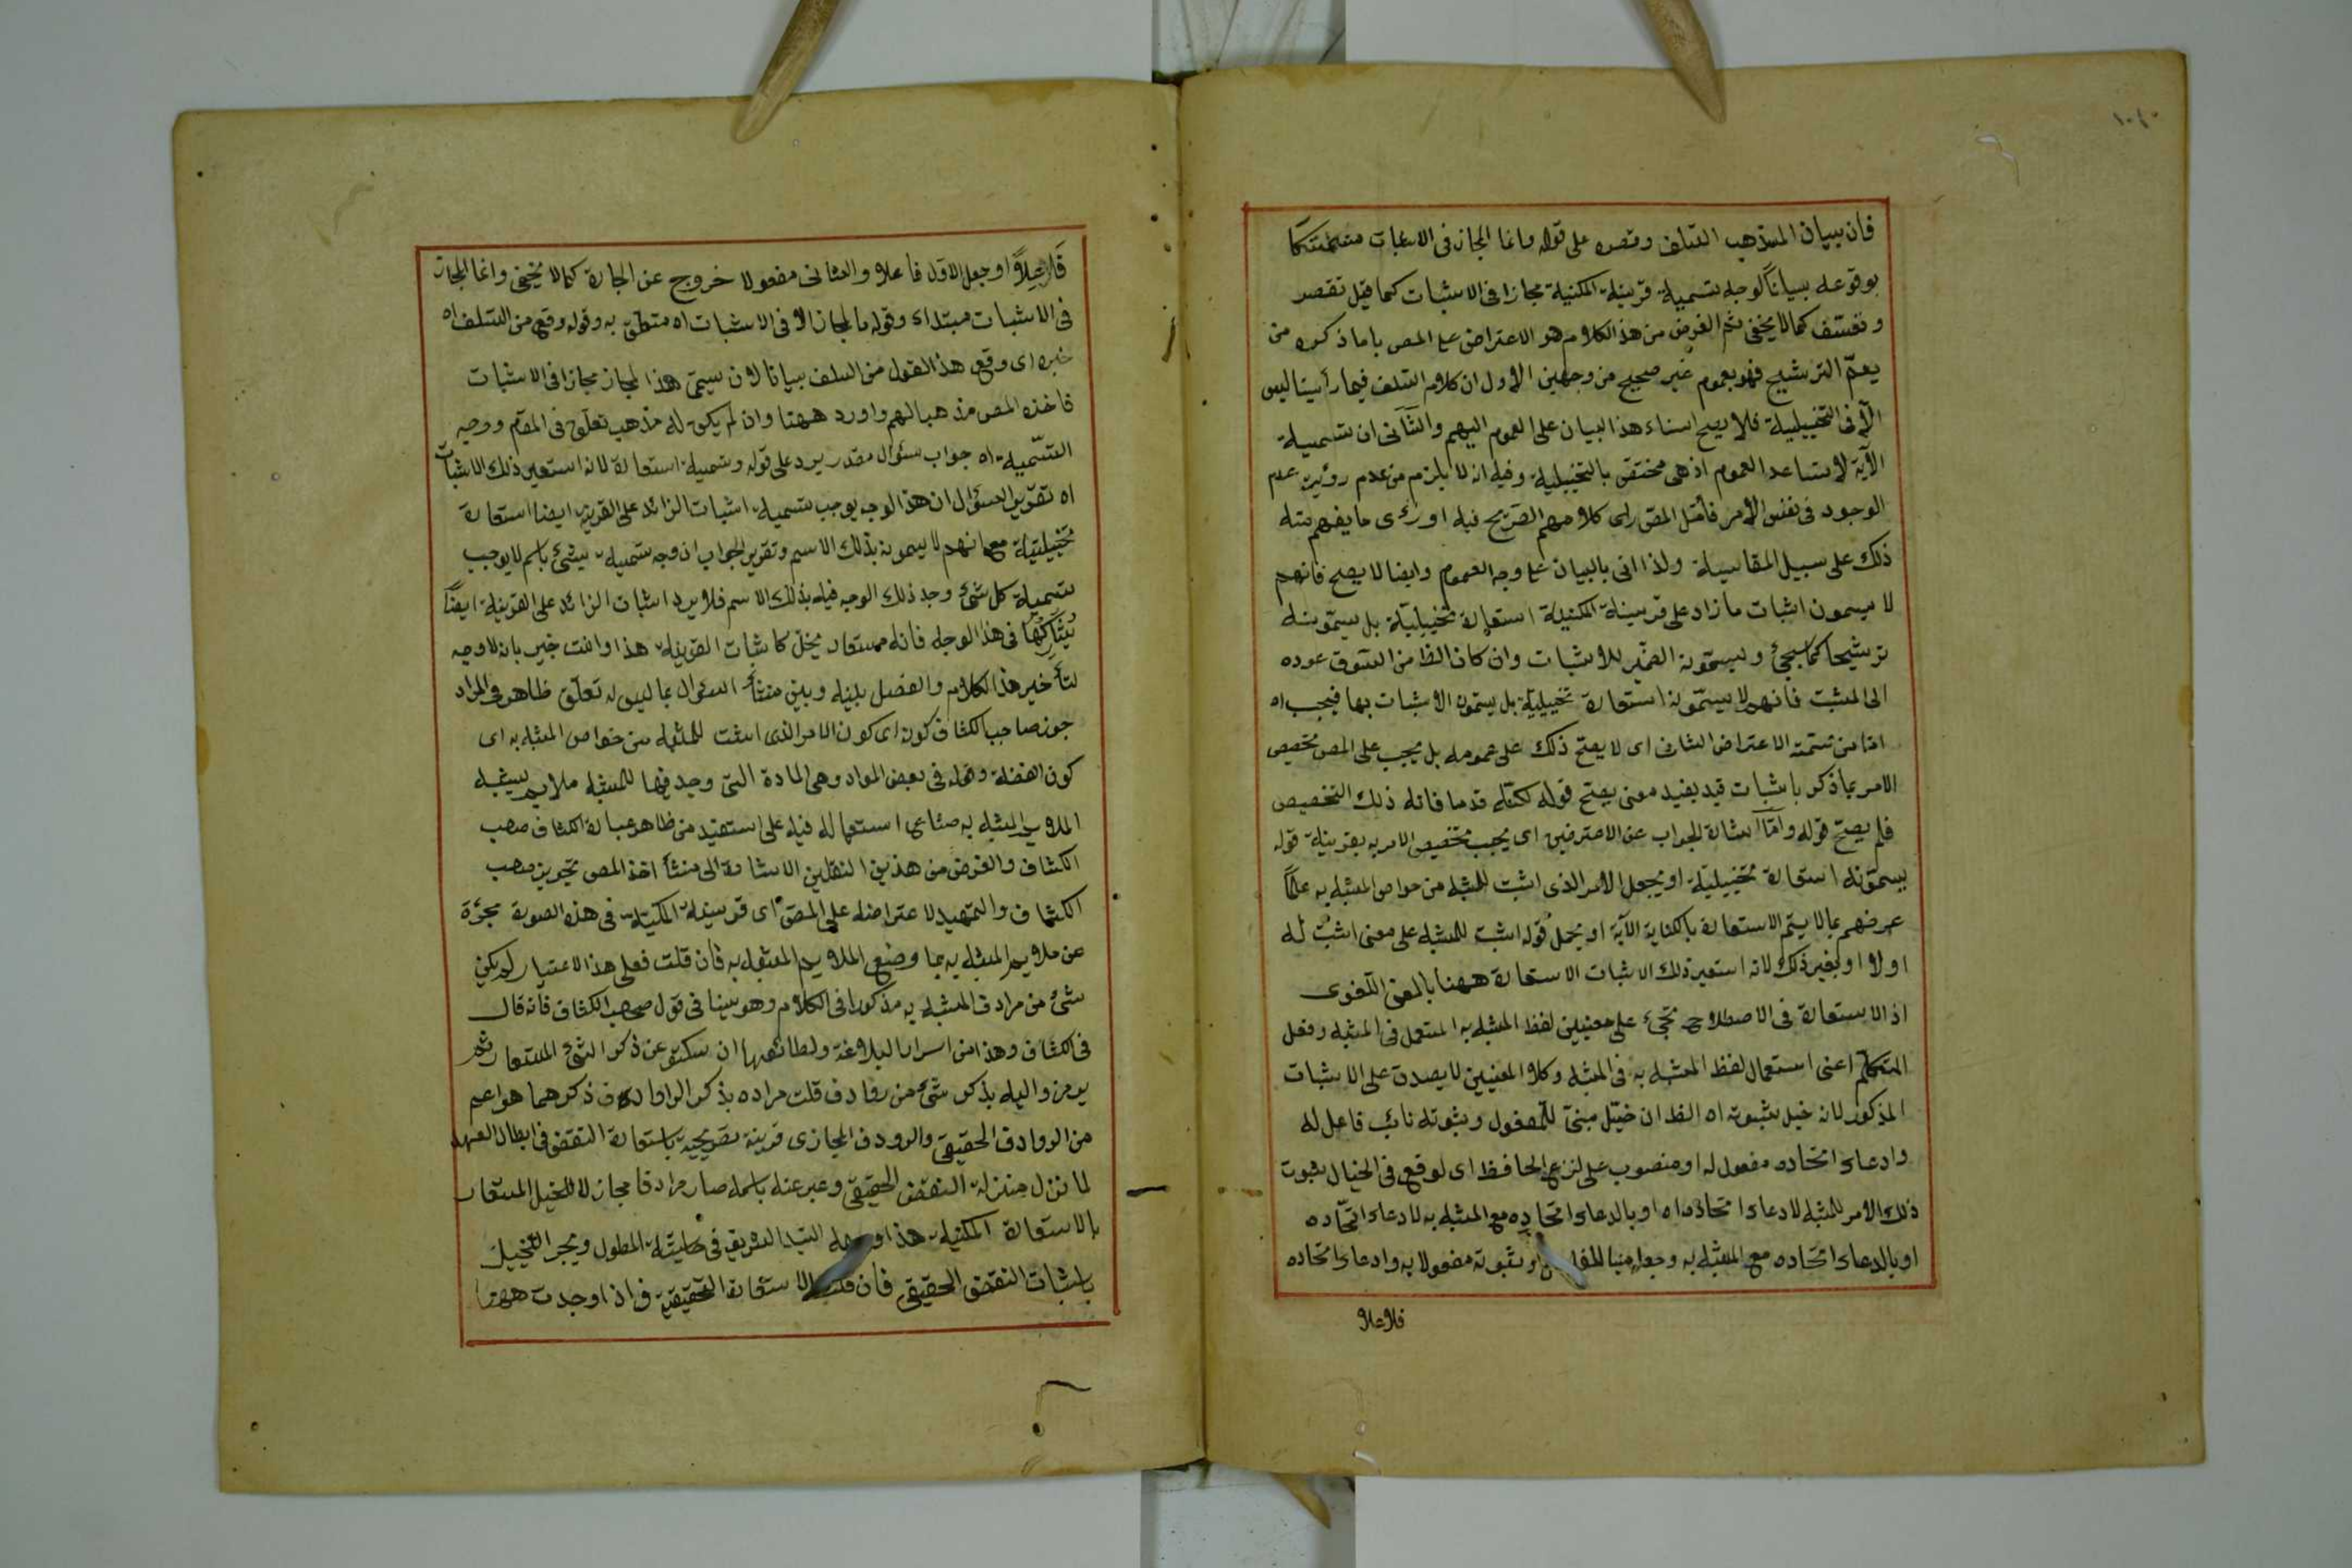 فان بيان المذهب السلف وقصره على قوله وانما المجاز فى الاثبات
بوقوعه بيانا لوجه تسمية قرينة المكنية مجازا فى الاثبات كما قيل تقصر
وتعسف كما لا يخفى ثم الغرض من هذ الكلام هو الاعتراض على المص باما ذكره من
يعمّ الترشيح فهو بعموم غير صحيح من وجهين الاول ان كلام السلف فيما رأينا ليس
الّا فى التخييلية فلا يصح اسناد هذا البيان على العموم اليهم والثّانى ان تسمية
الآية لا تساعد العموم اذ هى مختص بالتخييلية وفيه انه لا يلزم من عدم رؤيته عدم
الوجود فى نفس الأمر فأمّل المص راى كلامهم الصّريح فيه او رأى ما يفهم منه
ذلك على سبيل المقايسة ولذا اتى بالبيان على وجه العموم وايضا لا يصح فانهم
لا يسمون اثبات ما زاد على قرينة المكنية استعارة تخييليّة بل يسمّونه
ترشيحا كما سيجئ ويسمّونه الضمير للاثبات وان كان الظ من السّوق عوده
الى المثبت فانهم لا يسمّونه استعارة تخييليّة بل يسمّون الاثبات بها فيجب اه
امّا من تتمة الاعتراض الثانى اى لا يصحّ ذلك على عمومه بل يجب على المص تخصيص
الامر بما ذكر باثبات قيد يفيد معنى يصحّ قوله لكنّه قد ما فاته ذلك التخصيص
فلم يصحّ قوله وامّا اشارة لجواب عن الاعترضين اى يجب تخصيص الامر به بقرينة قوله
يسمّونه استعارة تخييليّة او يجعل الأمر الذى اثبت للمشبه من خواص المشبه به علمًا
عرضهم بما لا يتم الاستعارة بالكناية الآية او يحمل قوله اثبت للمشبه على معنى اثبت له
اولا او بغير ذلك لانه استعير ذلك الاثبات الاستعارة ههنا بالمعنى اللّغوى
اذ الاستعارة فى الاصطلاح تجئ على معنيين لفظ المشبه به المستعمل فى المشبه وفعل
المتكلّم اعنى استعمال لفظ المشبه به فى المشبه وكلا المعنيين لا يصدق على الاثبات
المذكور لانه خيل بثبوته اه الظ ان خيّل مبنىّ للمفعول وثبوته نائب فاعل له
وادعاء اتحاده مفعول له او منصوب على نزع الحافظ اى لوقع فى الخيال ثبوت
ذلك الامر للمشبه لادعاء اتحاده اه او بالدعاء اتحاده مع المشبه به لادعاء اتّحاده
او بالدعاء اتحاده مع المشبه به وجعله مبنيا للفاعل او ثبوته مفعولا به وادعاء اتحاده
فلا علا
فلا علًا او جعل الاول فاعلا والثانى مفعولا خروج عن الجارة كما لا يخفى وانما المجاز
فى الاثبات مبتداء وقوله بالمجاز الا فى الاثبات اه متعلق به وقوله وقع من السلف اه
خبره اى وقع هذ القول من السلف بيانا لان يسمّى هذ المجاز مجازا فى الاثبات
فاخذه المص مذهبا لهم واورد ههنا وان لم يكن له مذهب تعلّق فى المقام ووجه
التسّمية اه جواب سئوال مقدر يرد على قوله وتسمية استعارة لانه استعير ذلك الاثبات
اه تقرير السئوال ان هذ الوجه يوجب تسمية اثبات الزائد على القرينة ايضا استعارة
تخييليّة مع انهم لا يسمونه بذلك الاسم وتقرير الجواب ان وجه تسمية شئ باسم لا يوجب
تسمية كل شئ وجد ذلك الوجه فيه بذلك الاسم فلا يرد اثبات الزائد على القرينة ايضًا
يُشاركُها فى هذ الوجه فانه مستعار يخلّ كاثبات القرينة هذا وانت خبير بانه لا وجه
لتأخير هذ الكلام والفصل بينه وبين منشأ السئوال بما ليس له تعلّق ظاهر فى المراد
جوز صاحب الكشاف كونه اى كون الامر الذى اثبت للمشبه من خواص المشبه به اى
كون الفضلة وقوله فى بعض المواد وهى المادة التى وجد فيها للمشبه ملايم يشبه
الملايم المشبه به استعماله فيه على استفيد من ظاهر عبارة الكشاف صحب
الكشاف والغرض من هذين النقلين الاشارة الى منشأ اخذ المص تجويز صحب
الكشاف والتمهيد لاعتراضه على المص اى قرينة المكنية فى هذه الصورة مجرّة
عن ملايم المشبه به بما وضع الملايم المشبه به فان قلت فعلى هذ الاعتبار لم يكن
شئ من مرادف المشبه به مذكورا فى الكلام وهو ينافى قول صحب الكشاف فانه قال
فى الكشاف وهذا من اسرار البلاغة ولطائفها ان يسكتوا عن ذكر الشئ المستعار ثم
يومزوا اليه بذكر شئ من روادف قلت مراده بذكر الروادف ذكرهما هو اعم
من الروادف الحقيقى والرودف المجازى قرينة تصريحية باستعارة النقض فى ابطال العهد
لما نزل منزلة النقض الحقيقى وعبر عنه باسمه صار مرادفا مجازا للخيل المستعار
بالاستعارة المكنية هذا السّيد الشريف فى حاشية المطول ويجر التخييل
باثبات النقض الحقيقى فان قلت الاستعارة التحقيقية فى اذا وجدت ههنا